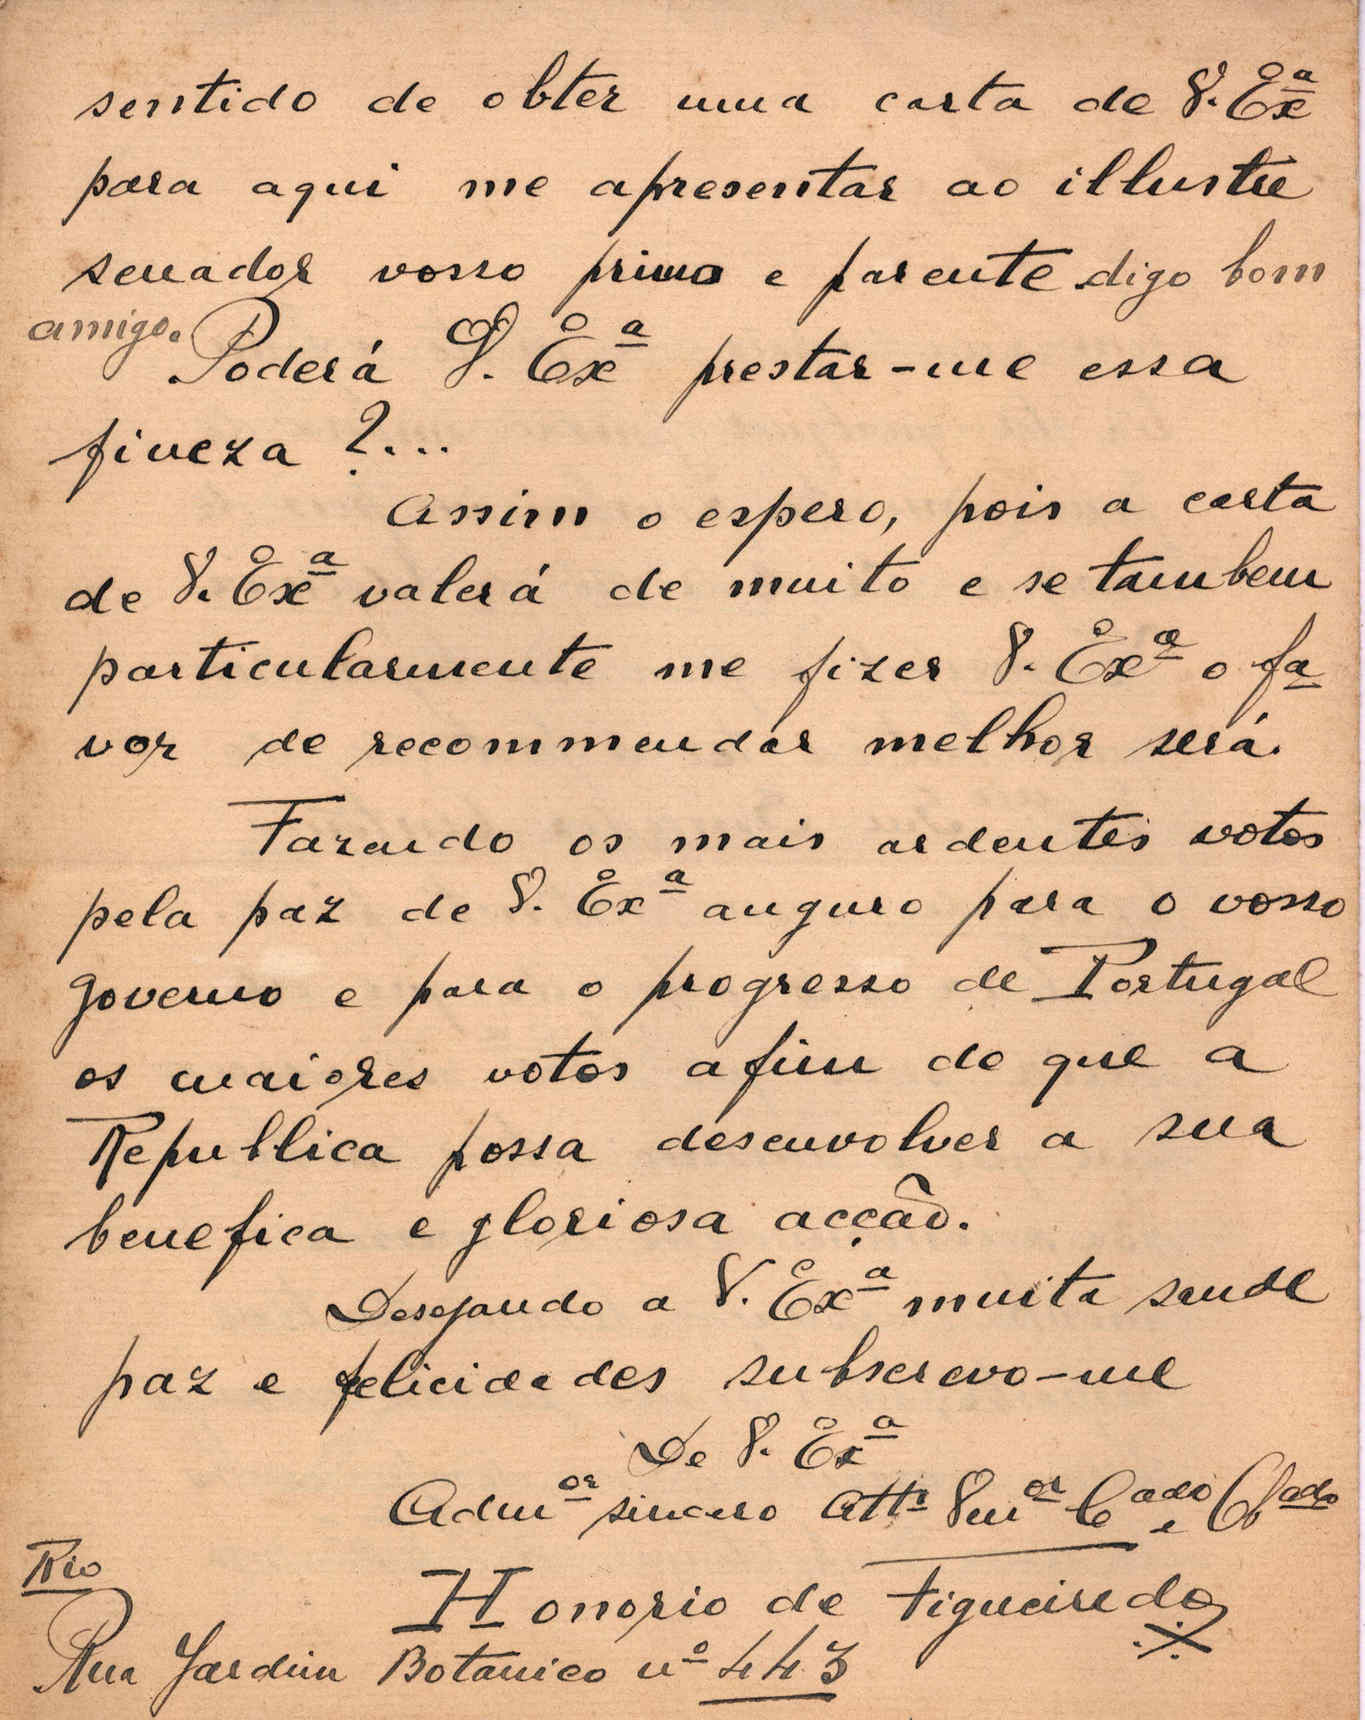 sentido de obter uma carta de V. Exª
para aqui me apresentar ao illustre
senador vosso primo e parente digo bom
amigo.
Poderá V. Exª prestar-me essa
fineza ?...
Assim o espero, pois a carta
de V. Exª valerá de muito e se tambem
particularmente me fizer V. Exª o fa
vor de recommendar melhor será.
Fazendo os mais ardentes votos
pela paz de V. Exª auguro para o vosso
governo e para o progresso de Portugal
os maiores votos afim de que a
Republica possa desenvolver a sua
benefica e gloriosa acção.
Desejando a V. Exª muita saude
paz e felicidades subscrevo-me
De V. Exª
Admor sincero Attº Venor Cado e Obado
Honorio de Figueiredo
Rio
Rua Jardim Botanico nº 443